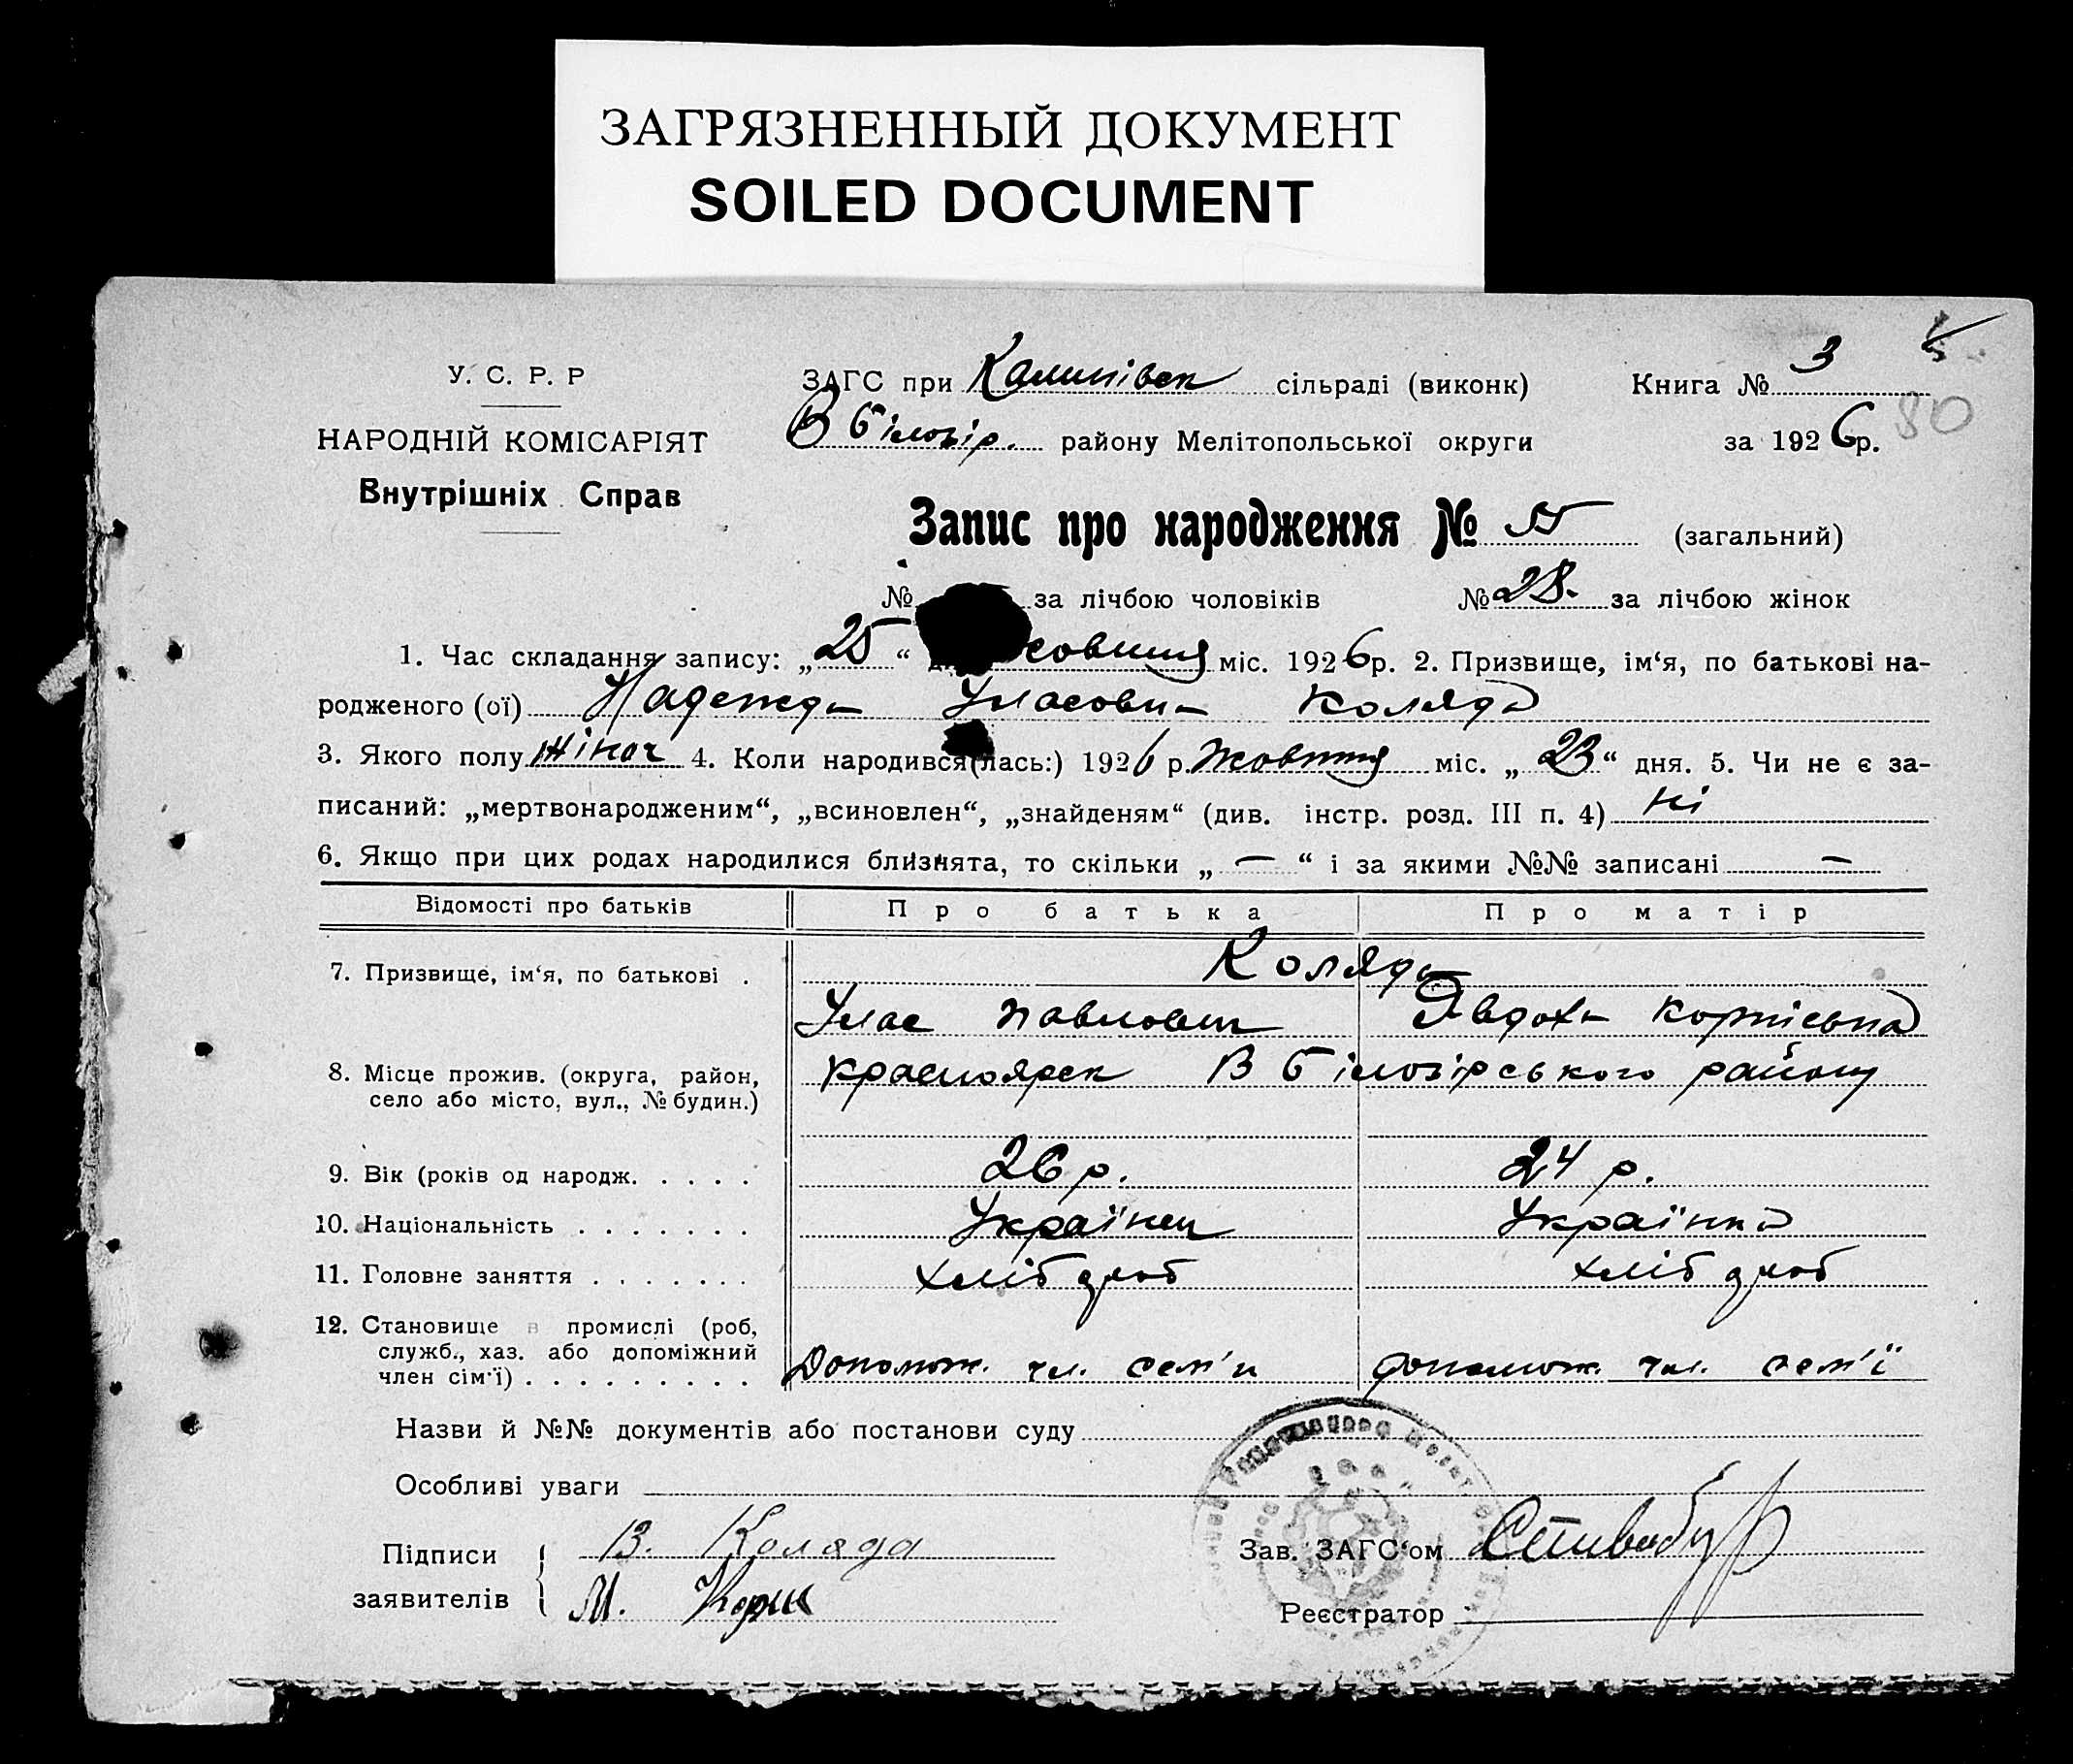 ЗАГРЯЗНЕННЫЙ ДОКУМЕНТ
SOILED DOCUMENT
У. С. Р. Р
НАРОДНІЙ КОМІСАРІЯТ
Внутрішніх Справ
ЗАГС при сільраді (виконк)
В Білозір. району Мелітопольської округи
Книга № 3
за 1926 р.
80
Запис про народження № (загальний)
№ за лічбою чоловіків № 28. за лічбою жінок
1. Час складання запису: „25“ міс. 1926 р. 2. Призвище, ім‘я, по батькові на-
родженого (ої) Надежда Уласовна Коляда
3. Якого полу жіноч 4. Коли народився(лась:) 1926 р. жовтня міс. „23“ дня. 5. Чи не є за-
писаний: „мертвонародженим“, „всиновлен“, „знайденям“ (див. інстр. розд. III п. 4) ні
6. Якщо при цих родах народилися близнята, то скільки „ — “ і за якими №№ записані —
Відомості про батьків Про батька Про матір
7. Призвище, ім‘я, по батькові . Коляда
Улас Павлович Явдоха
8. Місце прожив. (округа, район, Красноярск В Білозірського району
село або місто, вул., № будин.)
9. Вік (років од народж. . . . . 26 р. 24 р.
10. Національність . . . . . . . Українец Українка
11. Головне заняття . . . . . . . хлібороб хлібороб
12. Становище в промислі (роб,
служб., хаз. або допоміжний
член сім‘ї) . . . . . . . . . Допомож. чл. сем'и допомож. чл. сем'ї
Назви й №№ документів або постанови суду
Особливі уваги
Підписи В. Коляда
заявителів М.
Зав. ЗАГС‘ом
Реєстратор